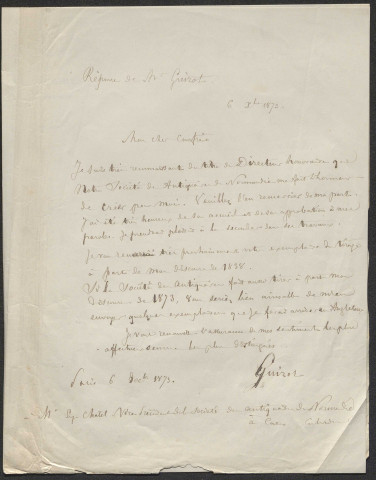 Réponse de Mr Guizot
6 Xbre 1873.
Mon cher Confrère
Je suis très reconnaissant du titre de Directeur honoraire que
votre Société des Antiquaires de Normandie me fait l'honneur
de pour moi. Veuillez l'en remercier de ma part.
J'ai été très heureux de l'accueil et de l'approbation à mes
paroles. Je prendrai plaisir à la seconder dans ses travaux.
Je vous enverrai très prochainement exemplaires du tirage
à part de mon discours de 1838.
Si la Société des Antiquaires fait tirer à part mon
discours de 1873, vous serez bien aimable de m'en
envoyer quelques exemplaires que je ferai
Je vous renouvelle l'assurance de mes sentiments les plus
affectueux comme les plus distingués
Guizot
Paris 6 Dec 1873.
Mr Eug. Chatel Secrétaire de la Société des Antiquaires de Normandie
à Caen